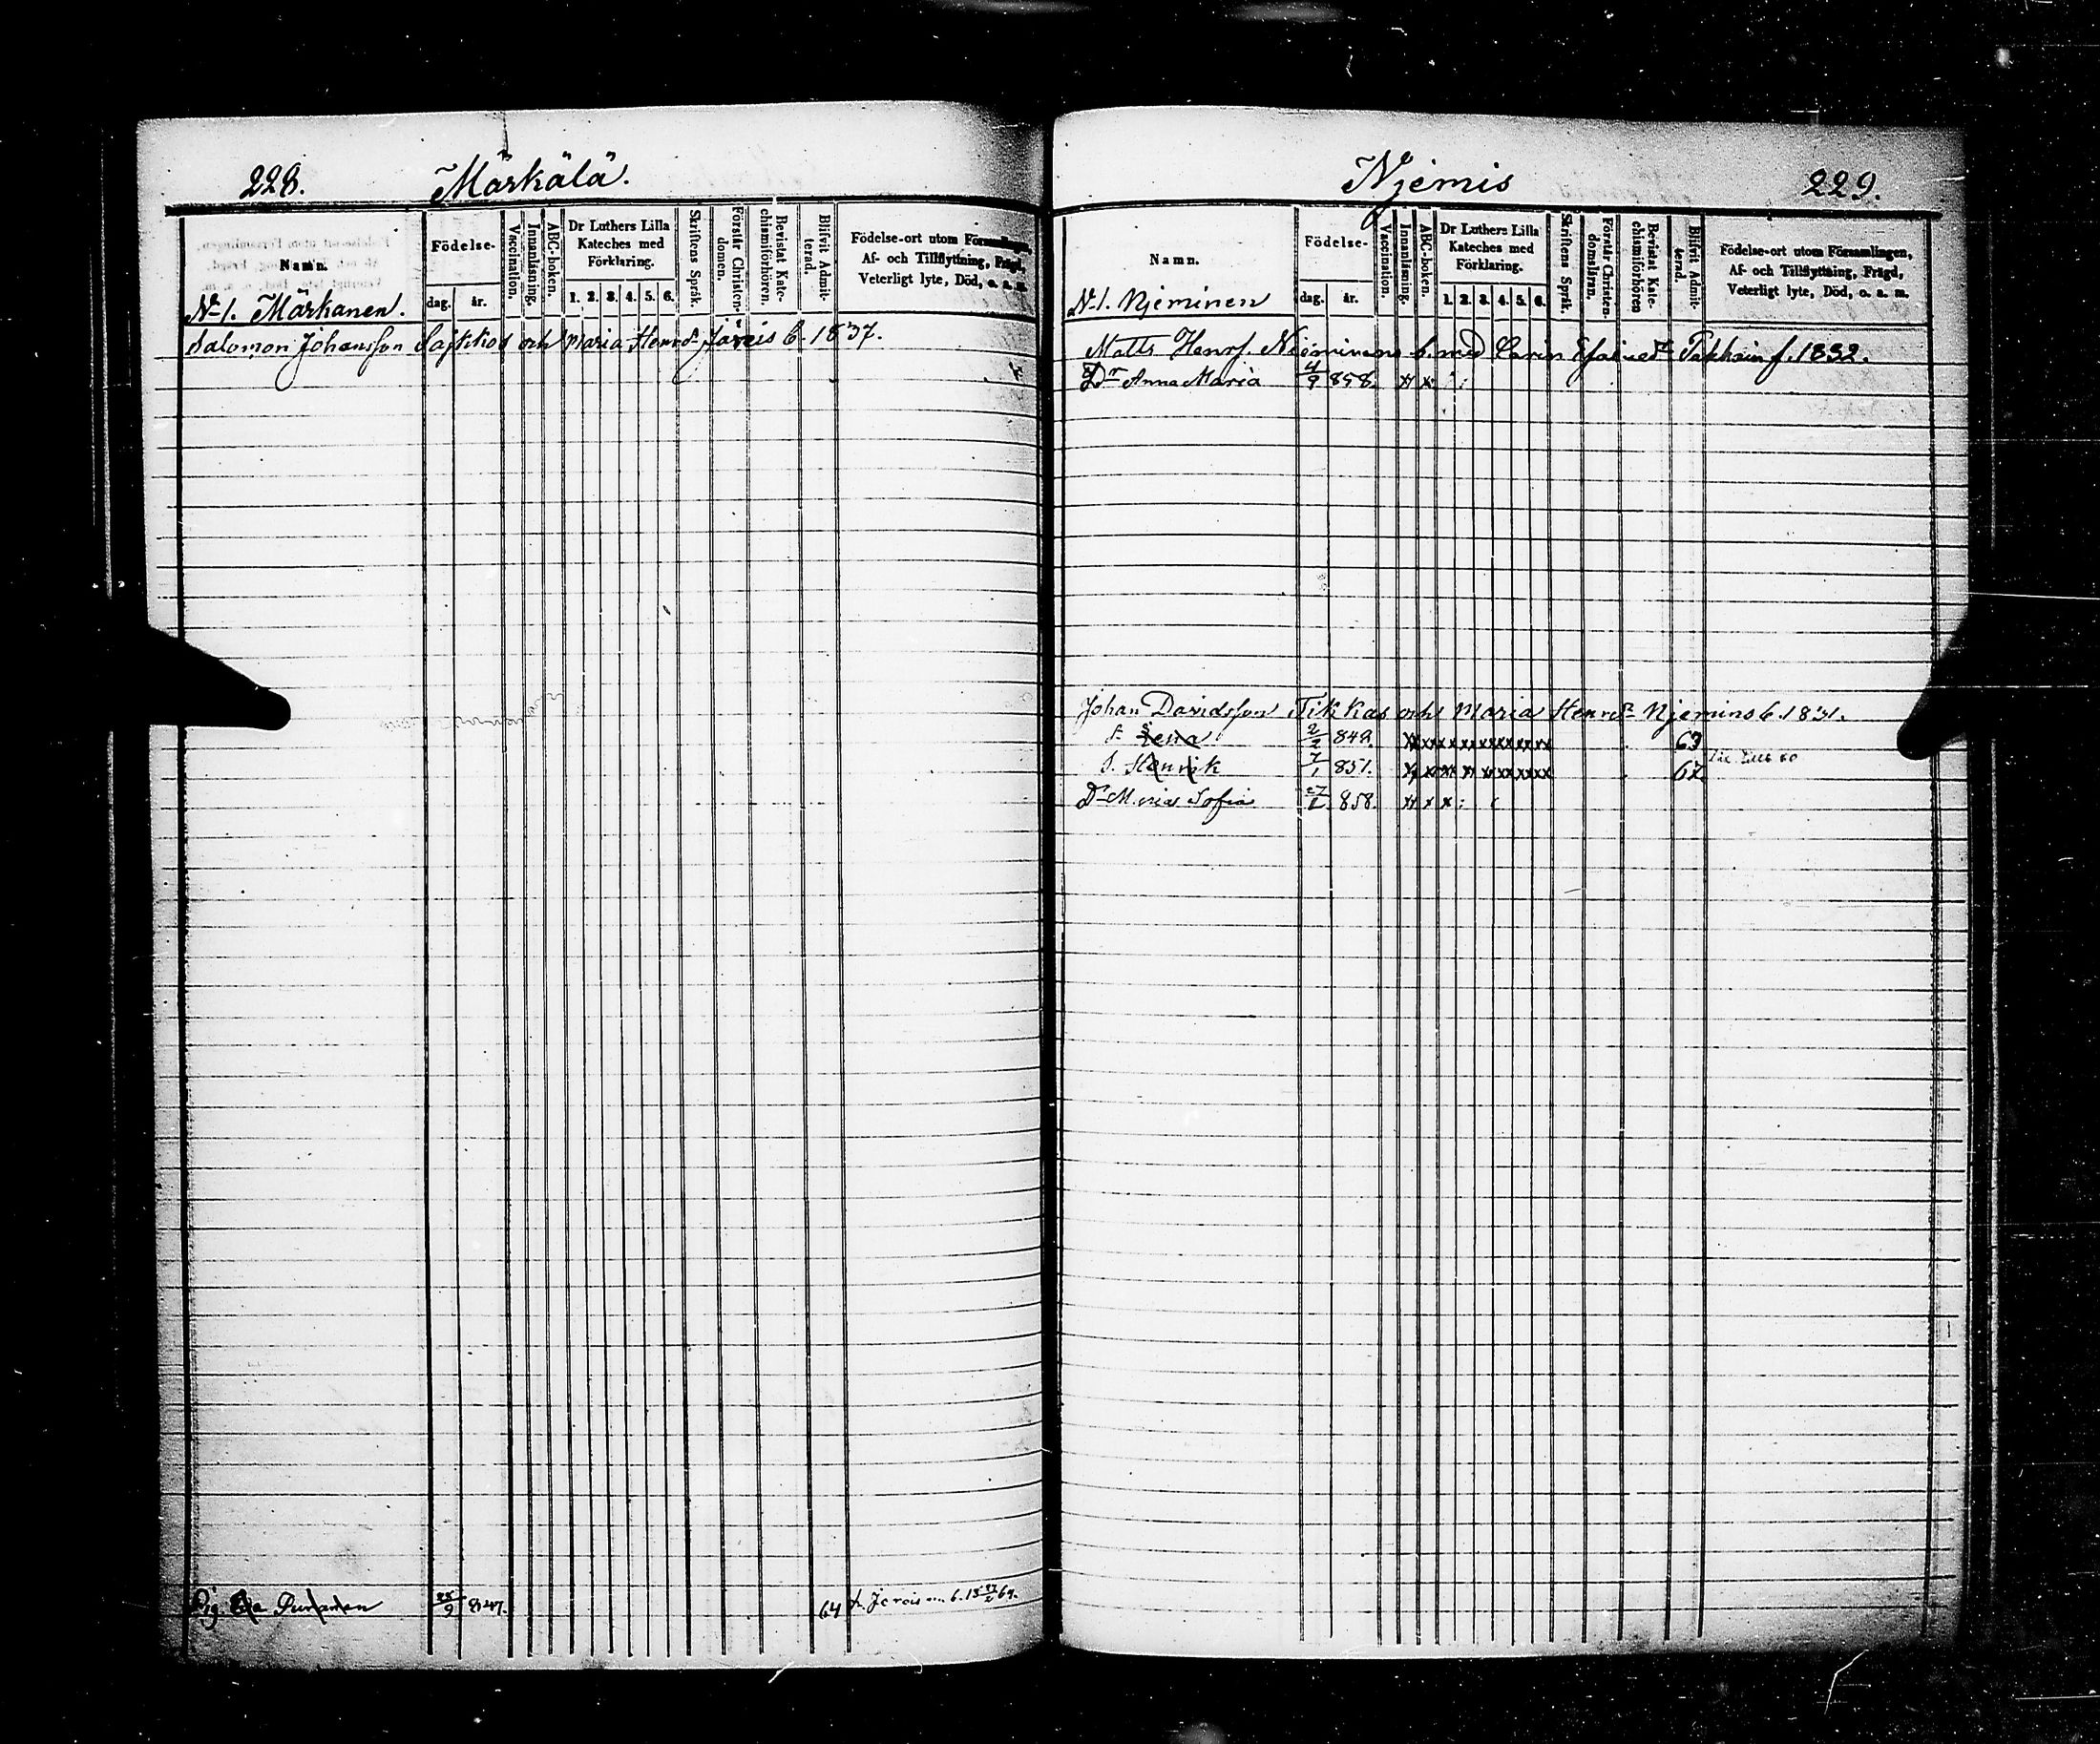 228. Märkälä.
Namn.
Födelse-
dag. år.
Vaccination.
Innanläsning.
ABC-boken.
Dr Luthers Lilla Kateches med Förklaring.
1. 2. 3. 4. 5. 6.
Skriftens Språk.
Förstår Christendomen.
Bevistat Katechismiförhören.
Blifvit Admitterad.
Födelse-ort utom Församlingen,
Af- och Tillflyttning, Frägd,
Veterligt lyte, Död, o. a. m.
N-1. Märkanen.
Salomon Johansson och Maria Henrd- 6. 1837.
Pig. 28/9 847. 64
Njemis 229.
Namn.
Födelse-
dag. år.
Vaccination.
Innanläsning.
ABC-boken.
Dr Luthers Lilla Kateches med Förklaring.
1. 2. 3. 4. 5. 6.
Skriftens Språk.
Förstår Christendomsläran.
Bevistat Katechismiförhören
Blifvit Admitterad.
Födelse-ort utom Församlingen,
Af- och Tillflyttning, Frägd,
Veterligt lyte, Död, o. a. m.
N-1. Njeminen
Matts Henrs. b. med Carin 1832.
Dr Anna Maria 4/9 858. x x
Johan Davidsson Tikkas och Maria Henrd- Njemins 6. 1831.
Lena 2/2 849. 63
S. Henrik 7/1 851. 67
Dr Maria Sofia 858. x x x